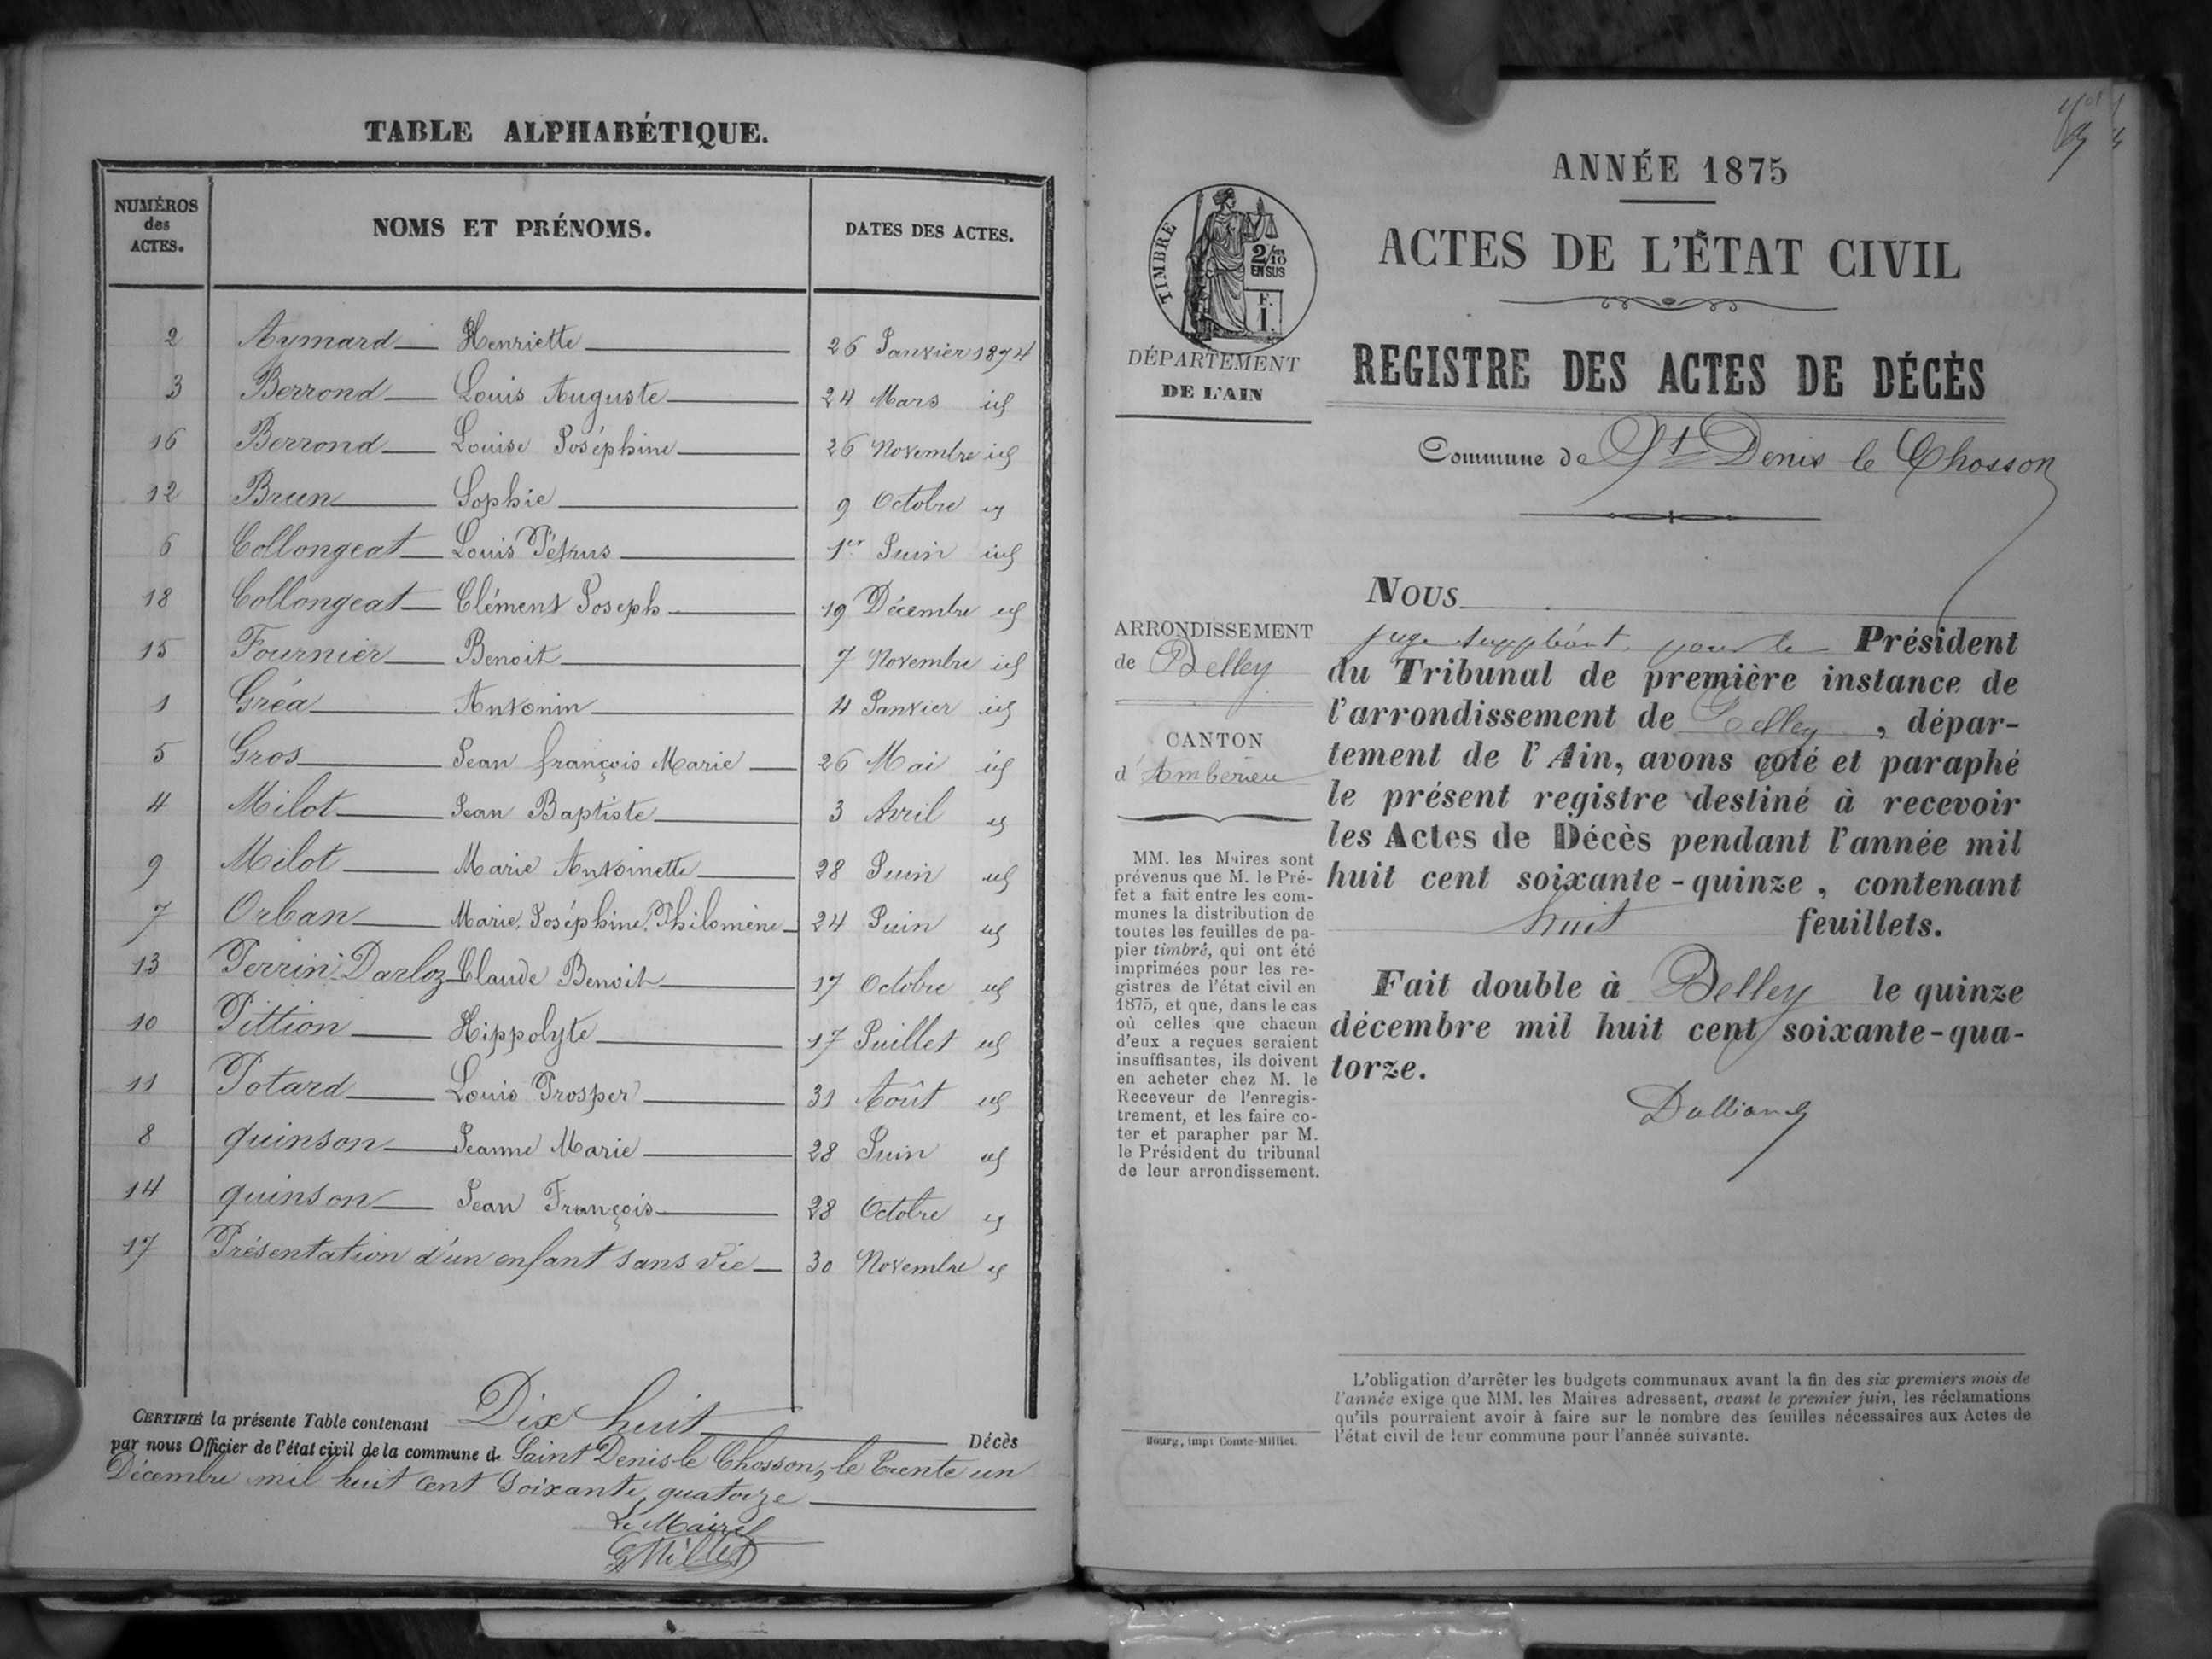 TABLE ALPHABÉTIQUE.
NUMÉROS des ACTES.
NOMS ET PRÉNOMS.
DATES DES ACTES.
2 Aymard Henriette 26 Janvier 1874
3 Berrond Louis Auguste 24 Mars id
16 Berrond Louise Joséphine 26 Novembre id
12 Brun Sophie 9 Octobre id
6 Collongeat Louis Pétrus 1er Juin id
18 Collongeat Clément Joseph 19 Décembre id
15 Fournier Benoit 7 Novembre id
1 Gréa Antonin 4 Janvier id
5 Gros Jean françois Marie 26 Mai id
4 Milot Jean Baptiste 3 Avril id
9 Milot Marie Antoinette 28 Juin id
7 Orban Marie, Joséphine, Philomène 24 Juin id
13 Perrin-Darloz Claude Benoit 17 Octobre id
10 Pittion Hippolyte 17 Juillet id
11 Potard Louis Prosper 31 Août id
8 quinson Jeanne Marie 28 Juin id
14 quinson Jean François 28 Octobre id
17 Présentation d'un enfant sans vie 30 Novembre id
CERTIFIÉ la présente Table contenant Dix huit Décès
par nous Officier de l'état civil de la commune de Saint Denis-le Chosson, le trente un
Décembre mil huit cent soixante, quatorze
Le Maire
GMillet
ANNÉE 1875
ACTES DE L'ÉTAT CIVIL
REGISTRE DES ACTES DE DÉCÈS
Commune de St Denis le Chosson
TIMBRE
2/10 EN SUS
F. I.
DÉPARTEMENT
DE L'AIN
ARRONDISSEMENT
de Belley
CANTON
d'Amberieu
MM. les Maires sont
prévenus que M. le Pré-
fet a fait entre les com-
munes la distribution de
toutes les feuilles de pa-
pier timbré, qui ont été
imprimées pour les re-
gistres de l'état civil en
1875, et que, dans le cas
où celles que chacun
d'eux a reçues seraient
insuffisantes, ils doivent
en acheter chez M. le
Receveur de l'enregis-
trement, et les faire co-
ter et parapher par M.
le Président du tribunal
de leur arrondissement.
Bourg, impr Comte-Milliet.
NOUS
juge suppléant, pour le Président
du Tribunal de première instance de
l'arrondissement de Belley, dépar-
tement de l'Ain, avons coté et paraphé
le présent registre destiné à recevoir
les Actes de Décès pendant l'année mil
huit cent soixante-quinze, contenant
huit feuillets.
Fait double à Belley le quinze
décembre mil huit cent soixante-qua-
torze.
L'obligation d'arrêter les budgets communaux avant la fin des six premiers mois de
l'année exige que MM. les Maires adressent, avant le premier juin, les réclamations
qu'ils pourraient avoir à faire sur le nombre des feuilles nécessaires aux Actes de
l'état civil de leur commune pour l'année suivante.